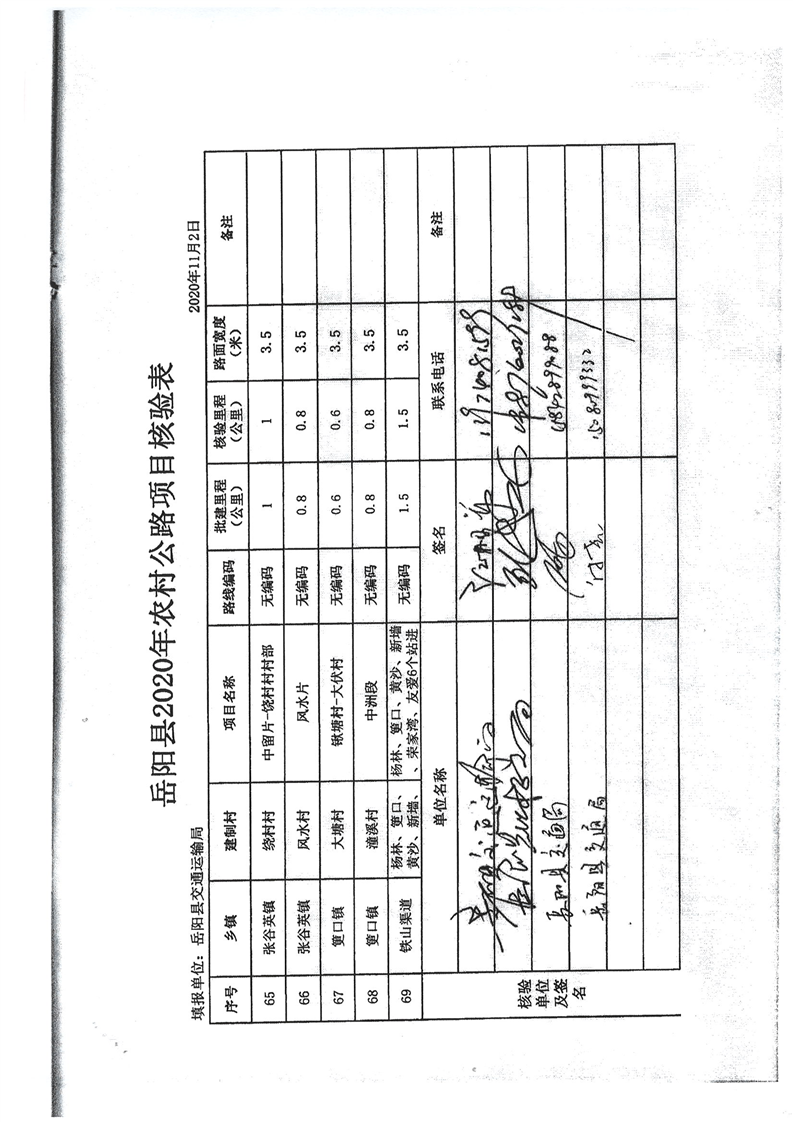 岳阳县2020年农村公路项目核验表
填报单位：岳阳县交通运输局 2020年11月2日
序号 乡镇 建制村 项目名称 路线编码 批建里程（公里） 核验里程（公里） 路面宽度（米） 备注
65 张谷英镇 绕村村 中留片-饶村村村部 无编码 1 1 3.5
66 张谷英镇 风水村 风水片 无编码 0.8 0.8 3.5
67 筻口镇 大塘村 锹塘村-大伏村 无编码 0.6 0.6 3.5
68 筻口镇 潼溪村 中洲段 无编码 0.8 0.8 3.5
69 铁山渠道 杨林、筻口、黄沙、新墙、 杨林、筻口、黄沙、新墙、荣家湾、友爱6个站进 无编码 1.5 1.5 3.5
核验单位及签名 单位名称 签名 联系电话 备注
岳阳县交通局
岳阳县交通局